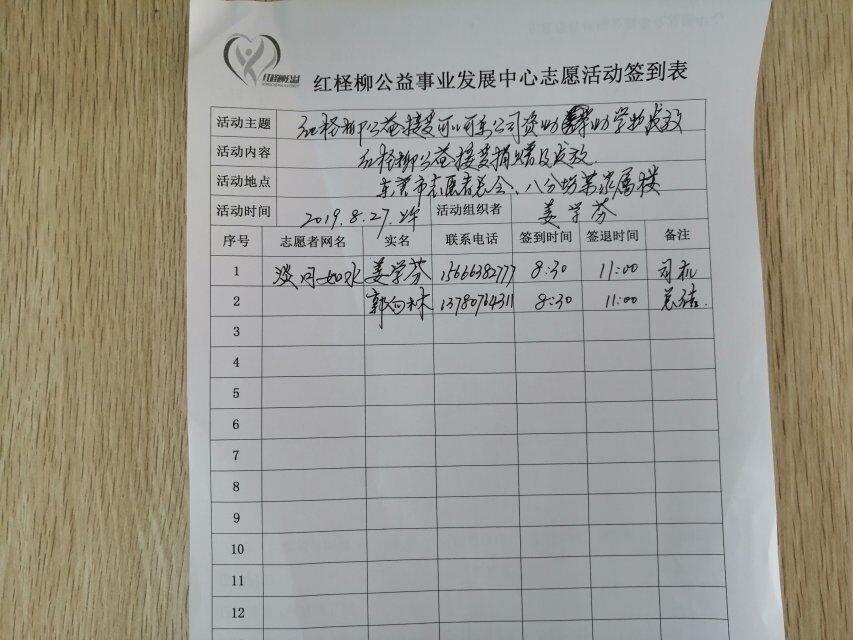 红柽柳公益
红柽柳公益事业发展中心志愿活动签到表
活动主题 红柽柳公益接受可口可乐公司资助 助学物发放
活动内容 红柽柳公益接受捐赠及发放.
活动地点 东营市志愿者总会、八分场 家属楼
活动时间 2019.8.27. 活动组织者 姜学芬
序号 志愿者网名 实名 联系电话 签到时间 签退时间 备注
1 淡 如水 姜学芬 15666382777 8:30 11:00 司机
2 郭向林 13780764311 8:30 11:00 总结.
3
4
5
6
7
8
9
10
11
12